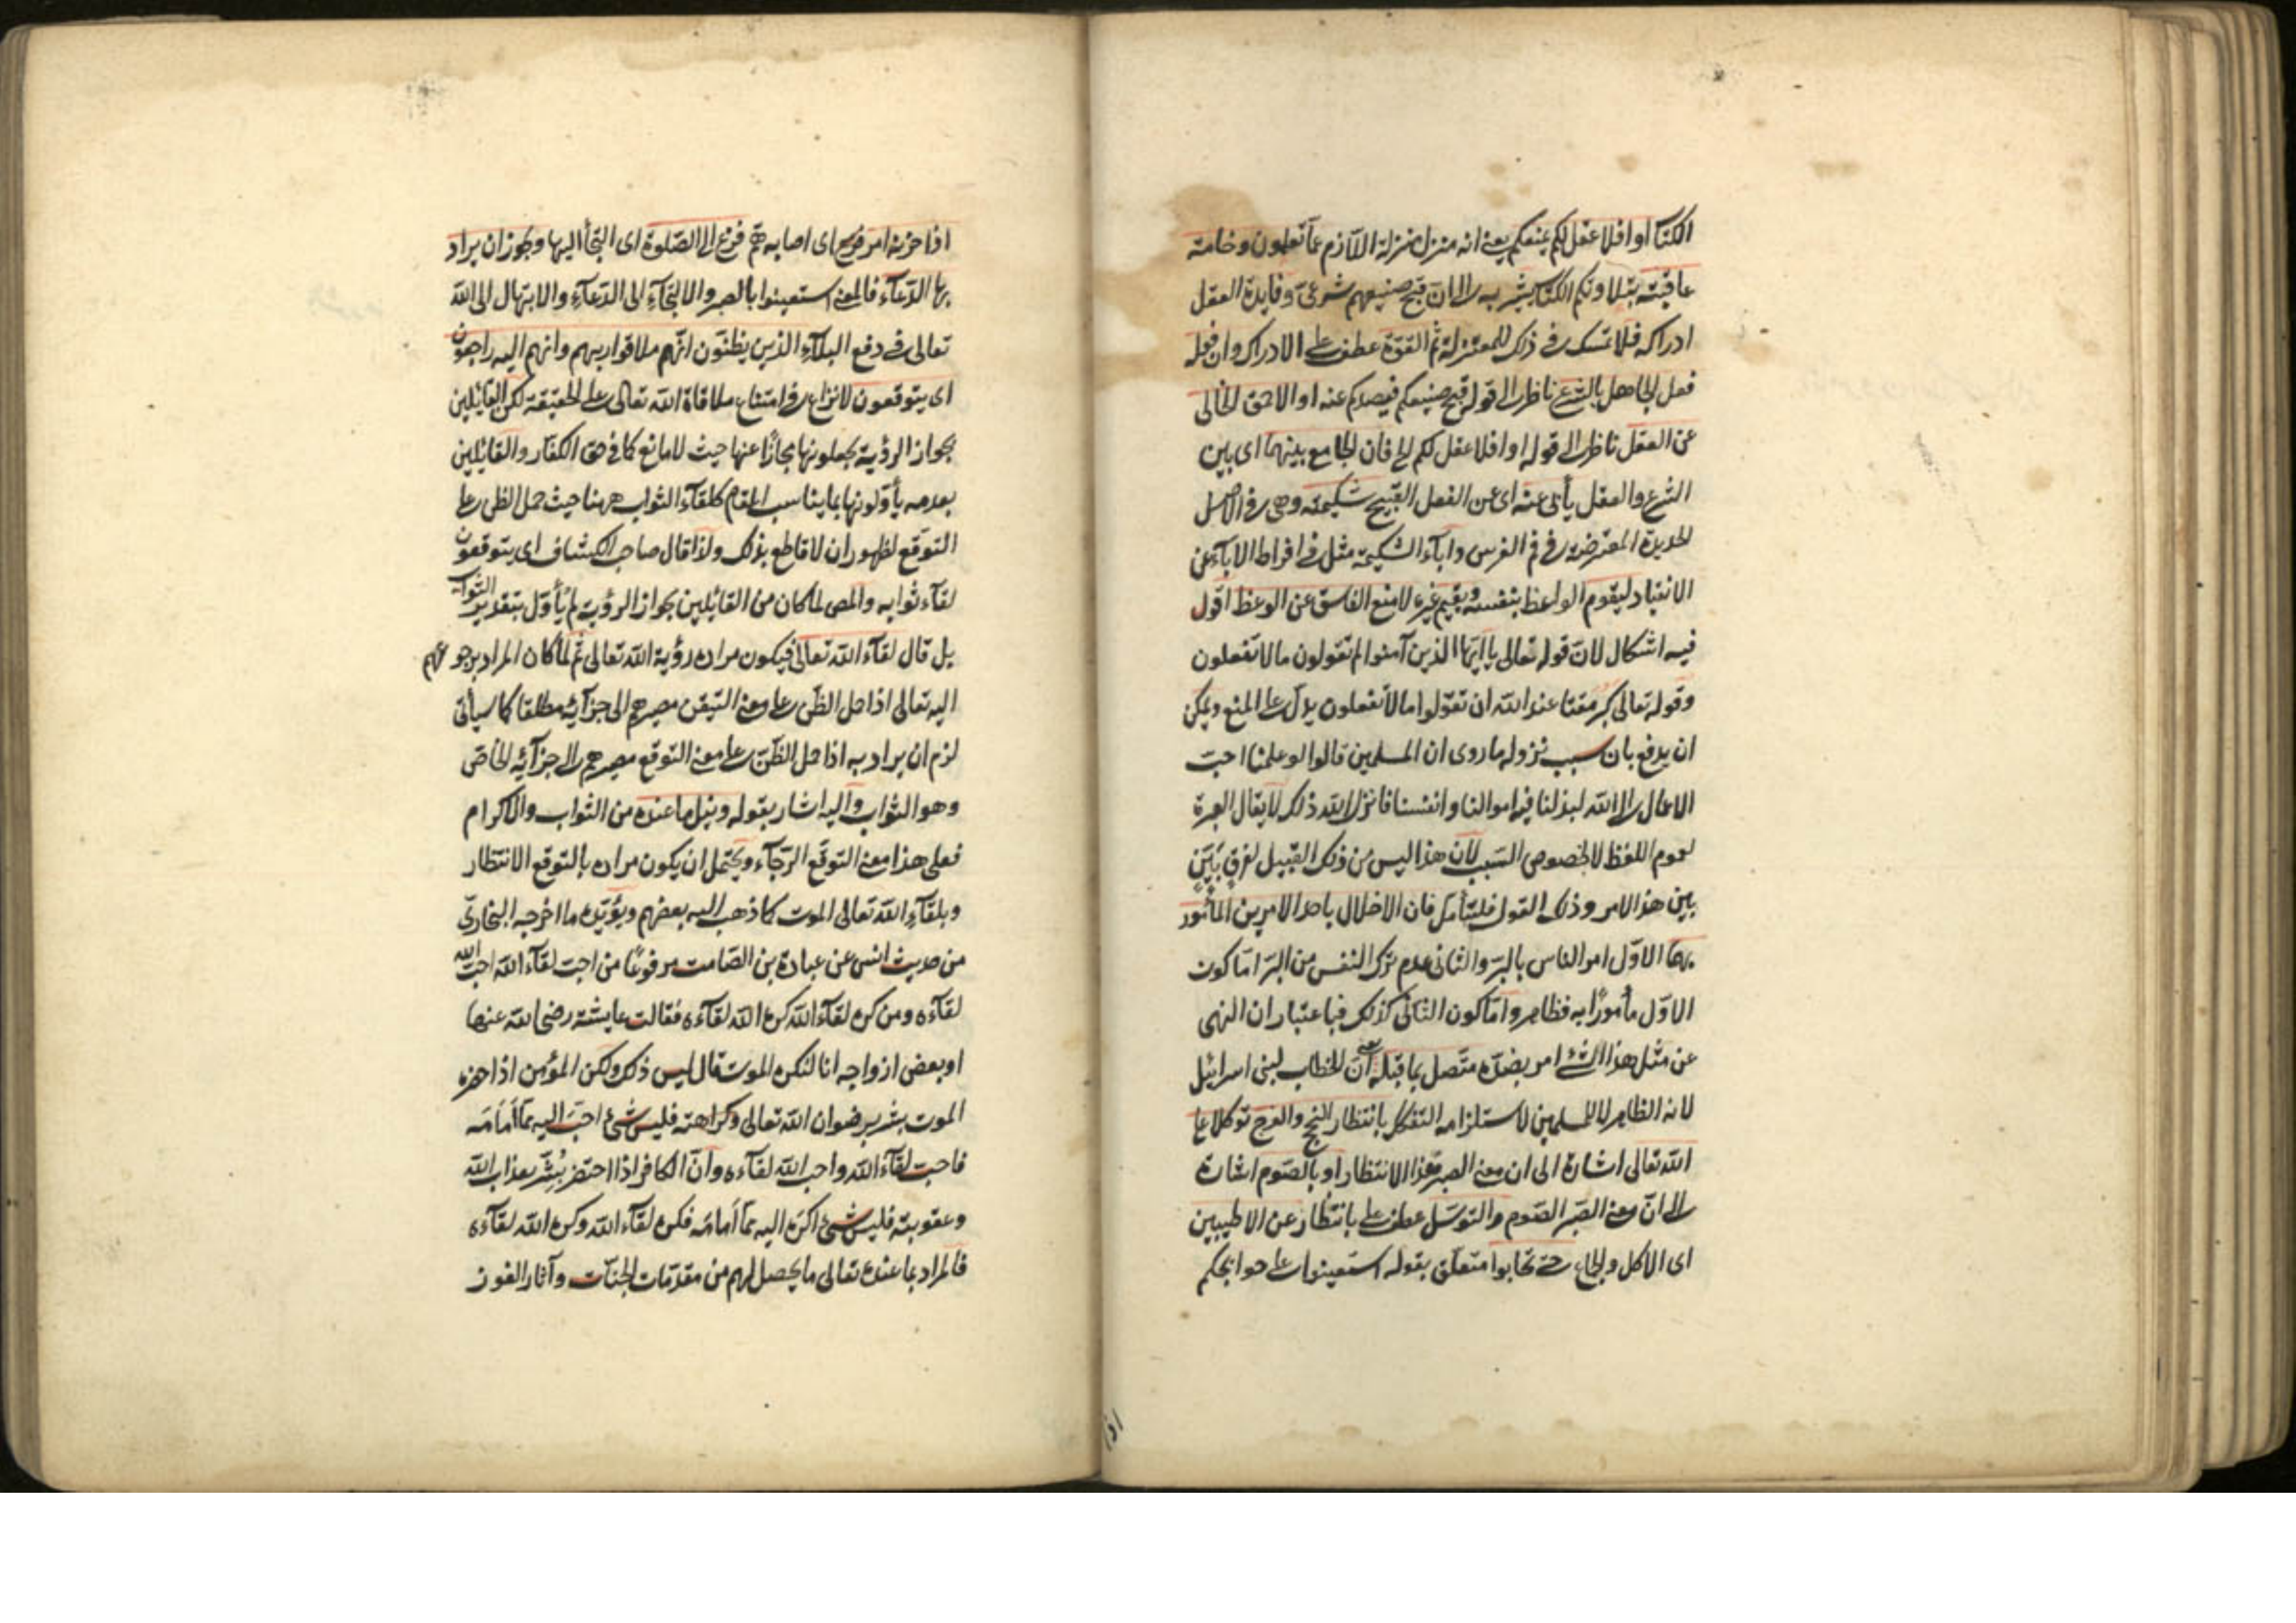 الكتاب او افلا عقل لكم يمنعكم يعنى انه منزل منزلة اللازم عما تعلمون وخامة
عاقبته بتلاوتكم الكتاب يشير به الى ان قبح صنيعهم شرعىّ وفايدة العقل
ادراكه فلا تمسك فى ذلك للمعتزلة ثم القوّة عطف على الادراك وان فعله
فعل الجاهل بالشرع ناظر الى قوله قبح صنيعكم فيصدكم عنه او الاحمق الخالى
عن العقل ناظر الى قوله او افلا عقل لكم الخ فان الجامع بينهما اى بين
الشرع والعقل يأبى عنه اى عن الفعل القبيح شكيمته وهى فى الاصل
الحديدة المعترضة فى فم الفرس واباء الشكيمة مثل فى افراط الاباء عن
الانقياد ليقوم الواعظ بنفسه ويقيم غيره لا منع الفاسق عن الوعظ اقول
فيه اشكال لان قوله تعالى يا ايّها الذين آمنوا لم تقولون ما لا تفعلون
وقوله تعالى كبر مقتا عند الله ان تقولوا ما لا تفعلون يدلّ على المنع ويمكن
ان يدفع بان سبب نزوله ما روى ان المسلمين قالوا لو علمنا احبّ
الاعمال الى الله لبذلنا فيه اموالنا وانفسنا فانزل الله ذلك لا يقال العبرة
لعموم اللفظ لا لخصوص السبب لان هذا ليس من ذلك القبيل لفرق بيّن
بين هذا الامر وذلك القول فليتأمل فان الاخلال باحد الامرين المأمور
بهما الاوّل امر الناس بالبرّ والثانى عدم ترك النفس من البرّ امّا كون
الاوّل مأمورًا به فظاهر وامّا كون الثانى كذلك فباعتبار ان النهى
عن مثل هذا الشئ امر بضدّه متّصل بما قبله يعنى انّ الخطاب لبنى اسرائيل
لانه الظاهر لا للمسلمين لاستلزامه التفكك بانتظار النجح والفرج توكلا على
الله تعالى اشارة الى ان معنى الصبر هذا الانتظار او بالصوم اشارة
الى انّ معنى الصبر الصوم والتوسّل عطف على بانتظار عن الاطيبين
اى الاكل والجماع حتى تجابوا متعلّق بقوله استعينوا على حوايجكم
اذا
اذا حزبه امر فزع اى اصابه همّ فزع الى الصلوة اى التجأ اليها وجوز ان يراد
بها الدّعاء فالمعنى استعينوا بالصبر والالتجاء الى الدّعاء والابتهال الى الله
تعالى فى دفع البلاء الذين يظنّون انّهم ملاقوا ربهم وانهم اليه راجعون
اى يتوقعون لا نزاع فى امتناع ملاقاة الله تعالى على الحقيقة لكن القائلين
بجواز الرؤية يجعلونها مجازًا عنها حيث لا مانع كما فى حق الكفار والقائلين
بعدمه يأوّلونها بما يناسب المقام كلقاء الثواب ههنا حيث حمل الظن على
التوقع لظهور ان لا قاطع بذلك ولذا قال صاحب الكشاف اى يتوقعون
لقاء ثوابه والمص لما كان من القائلين بجواز الرؤية لم يأوّل بتقدير الثواب
بل قال لقاء الله تعالى فيكون مراده رؤية الله تعالى ثم لما كان المراد برجوعهم
اليه تعالى اذا حمل الظنّ على معنى التيقن مصيرهم الى جزائه مطلقا كما سيأتى
لزم ان يراد به اذا حمل الظنّ على معنى التوقع مصيرهم الى جزائه الخاصّ
وهو الثواب واليه اشار بقوله ونيل ما عنده من الثواب والاكرام
فعلى هذا معنى التوقّع الرّجاء ويحتمل ان يكون مراده بالتوقع الانتظار
وبلقاء الله تعالى الموت كما ذهب اليه بعضهم ويؤيّده ما اخرجه البخارىّ
من حديث انس عن عبادة بن الصّامت مرفوعًا من احبّ لقاء الله احبّ الله
لقاءه ومن كره لقاء الله كره الله لقاءه فقالت عايشة رضى الله عنها
او بعض ازواجه انا لنكره الموت قال ليس ذلك ولكن المؤمن اذا حضره
الموت بشر برضوان الله تعالى وكرامته فليس شئ احبّ اليه ممّا أمامَه
فاحبّ لقاء الله واحب الله لقاءه وانّ الكافر اذا احتضر بُشّر بعذاب الله
وعقوبته فليس شئ اكرَه اليه ممّا أمامَه فكره لقاء الله وكره الله لقاءه
فالمراد بما عنده تعالى ما يحصل لهم من مقدّمات الجنّات وآثار الفوز